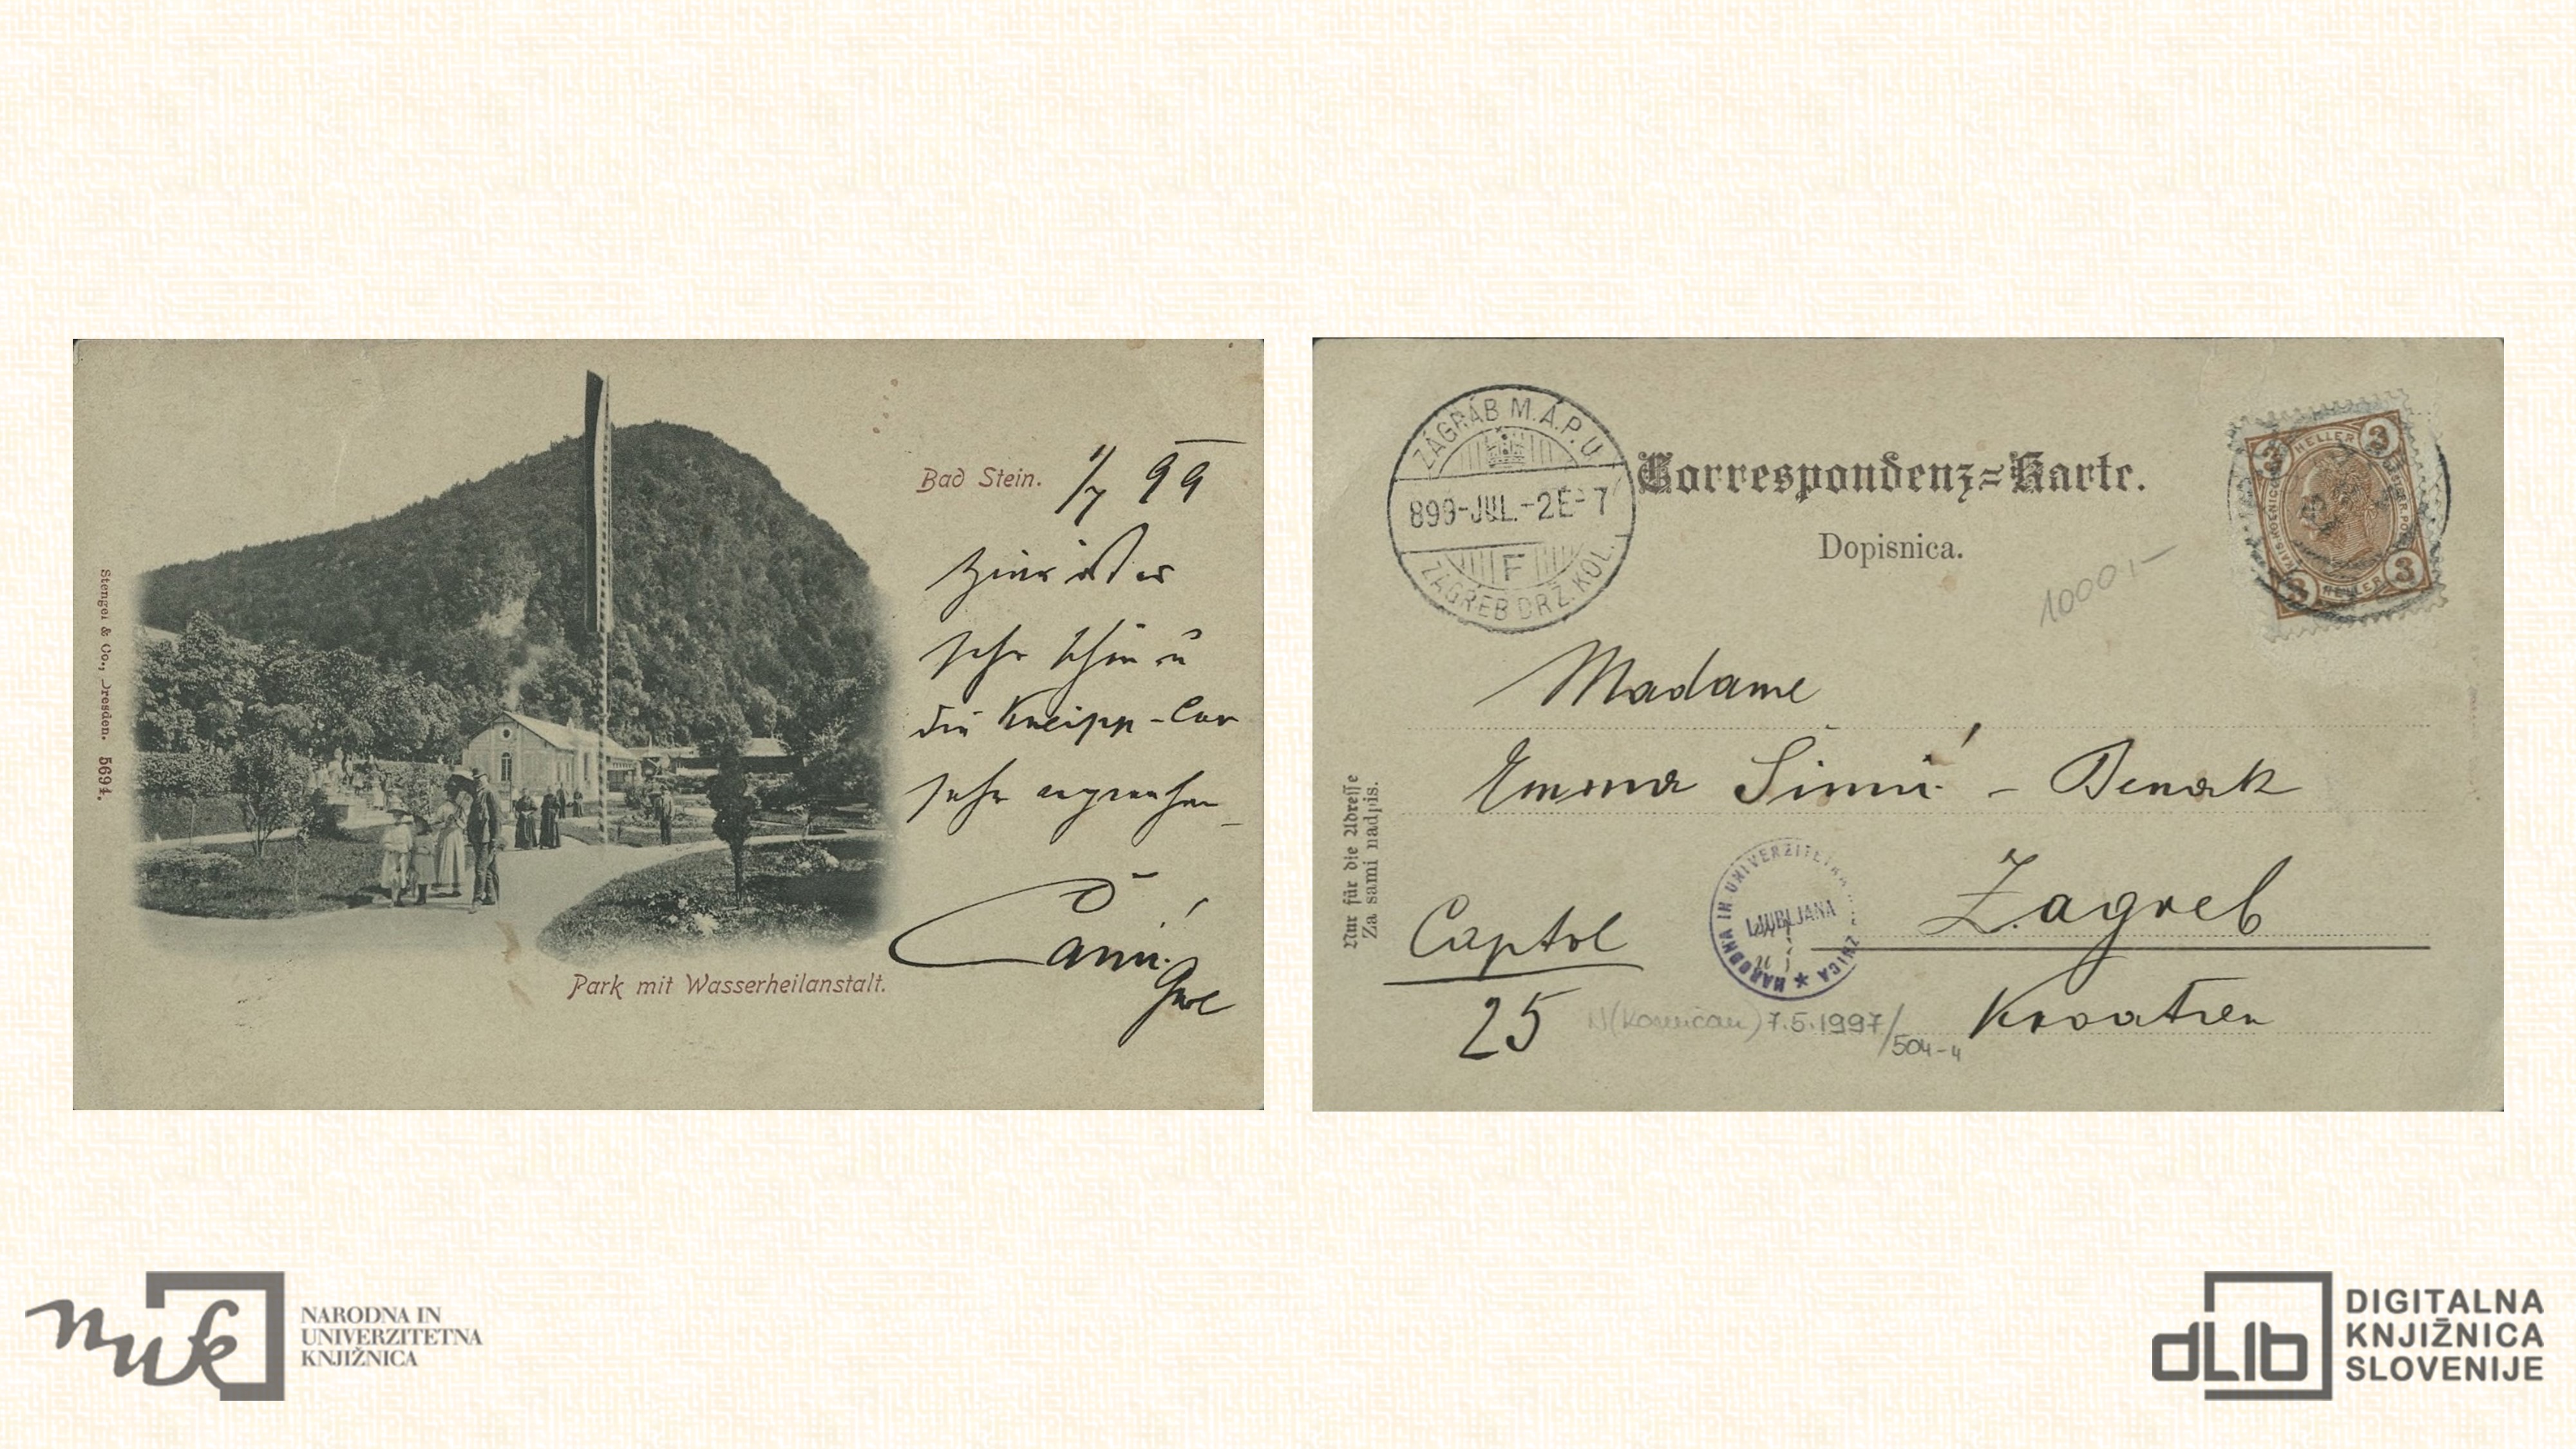 Bad Stein. 1/7 99
Hier ist es
sehr schön u
die Kneipp-Cur
sehr angenehm
Park mit Wasserheilanstalt.
Stengel & Co., Dresden. 5694.
ZÁGRÁB M.Á.P.U.
899-JUL.-2E-7
F
ZAGREB DRŽ. KOL.
Correspondenz-Karte.
Dopisnica.
3 HELLER 3
3 HELLER 3
1000,-
Madame
Emma
Zagreb
Captol
25
Kroatien
Nur für die Adresse
Za sami nadpis.
NARODNA IN UNIVERZITETNA KNJIŽNICA
LJUBLJANA
7.5.1997/504-4
nuk
NARODNA IN
UNIVERZITETNA
KNJIŽNICA
dLib
DIGITALNA
KNJIŽNICA
SLOVENIJE